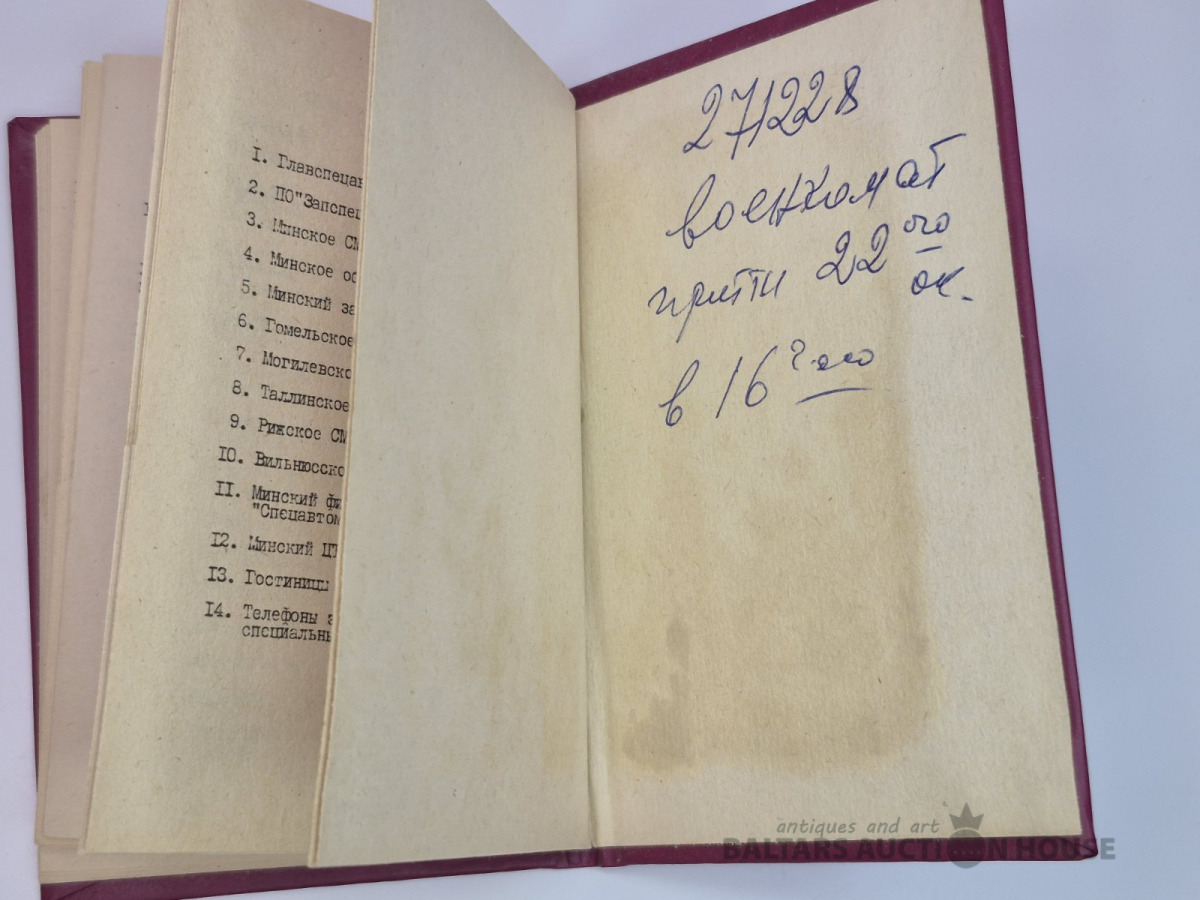 I. Главспецав
2. ПО"Запспец
3. Минское СМ
4. Минское об
5. Минский за
6. Гомельское
7. Могилевско
8. Таллинское
9. Рижское СМ
IO. Вильнюсско
II. Минский фи
"Спецавтом
I2. Минский ЦТ
I3. Гостиницы
I4. Телефоны з
специальны
271228
военкомат
притти 22ого ок.
в 16
antiques and art
BALTARS AUCTION HOUSE